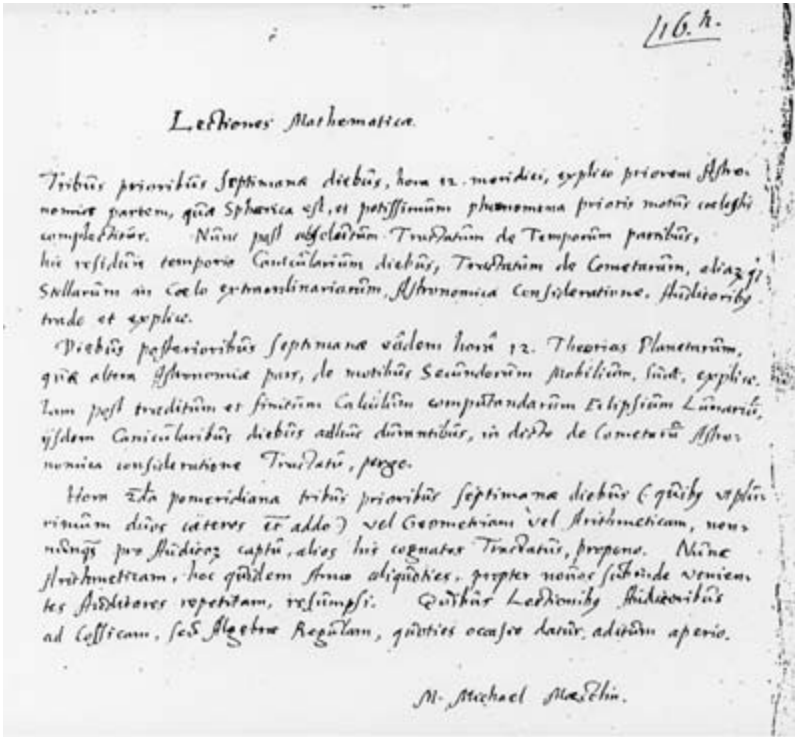 16. n.
Lectiones Mathematicæ.
Tribūs prioribūs septimanæ diebūs, hora 12. meridiei, explico priorem Astro-
nomiæ partem, qūæ Sphærica est, et potissimūm phænomena prioris motūs coelestis
complectitūr. Nūnc post absolūtūm Tractatūm de Temporūm partibūs,
hic residūis temporis Canicūlariūm diebūs, Tractatūm de Cometarūm,
Stellarūm in Coelo extraordinariarūm, Astronomica Consideratione, Aūditoribꝫ
trado et explico.
Diebūs posterioribūs septimanæ eâdem horâ 12. Theorias Planetarūm,
qūæ altera Astronomiæ pars, de motibūs Secūndorūm Mobiliūm, sūnt, explico.
Iam post traditūm et finitūm Calcūlūm compūtandarūm Eclipsiūm Lūnariū,
ijsdem Canicūlaribūs diebūs adhūc dūrantibūs, in dicto de Cometarū Astro-
nomica consideratione Tractatū, pergo.
Hora 2da pomeridiana tribūs prioribūs septimanæ diebūs (qūibꝫ ut plū-
rimūm dūos cæteros addo) vel Geometriam vel Arithmeticam, non-
nūnqꝫ pro Aūditoꝝ captū, alios his cognatos Tractatūs, propono. Nūnc
Arithmeticam, hoc qūidem Anno aliqūoties, propter novos sūbinde venien-
tes Aūditores repetitam, resūmpsi. Qūibūs Lectionibꝫ Aūditoribūs
ad Cossicam, seū Algebræ Regūlam, qūoties occasio datūr, aditūm aperio.
M. Michael Mæstlin.